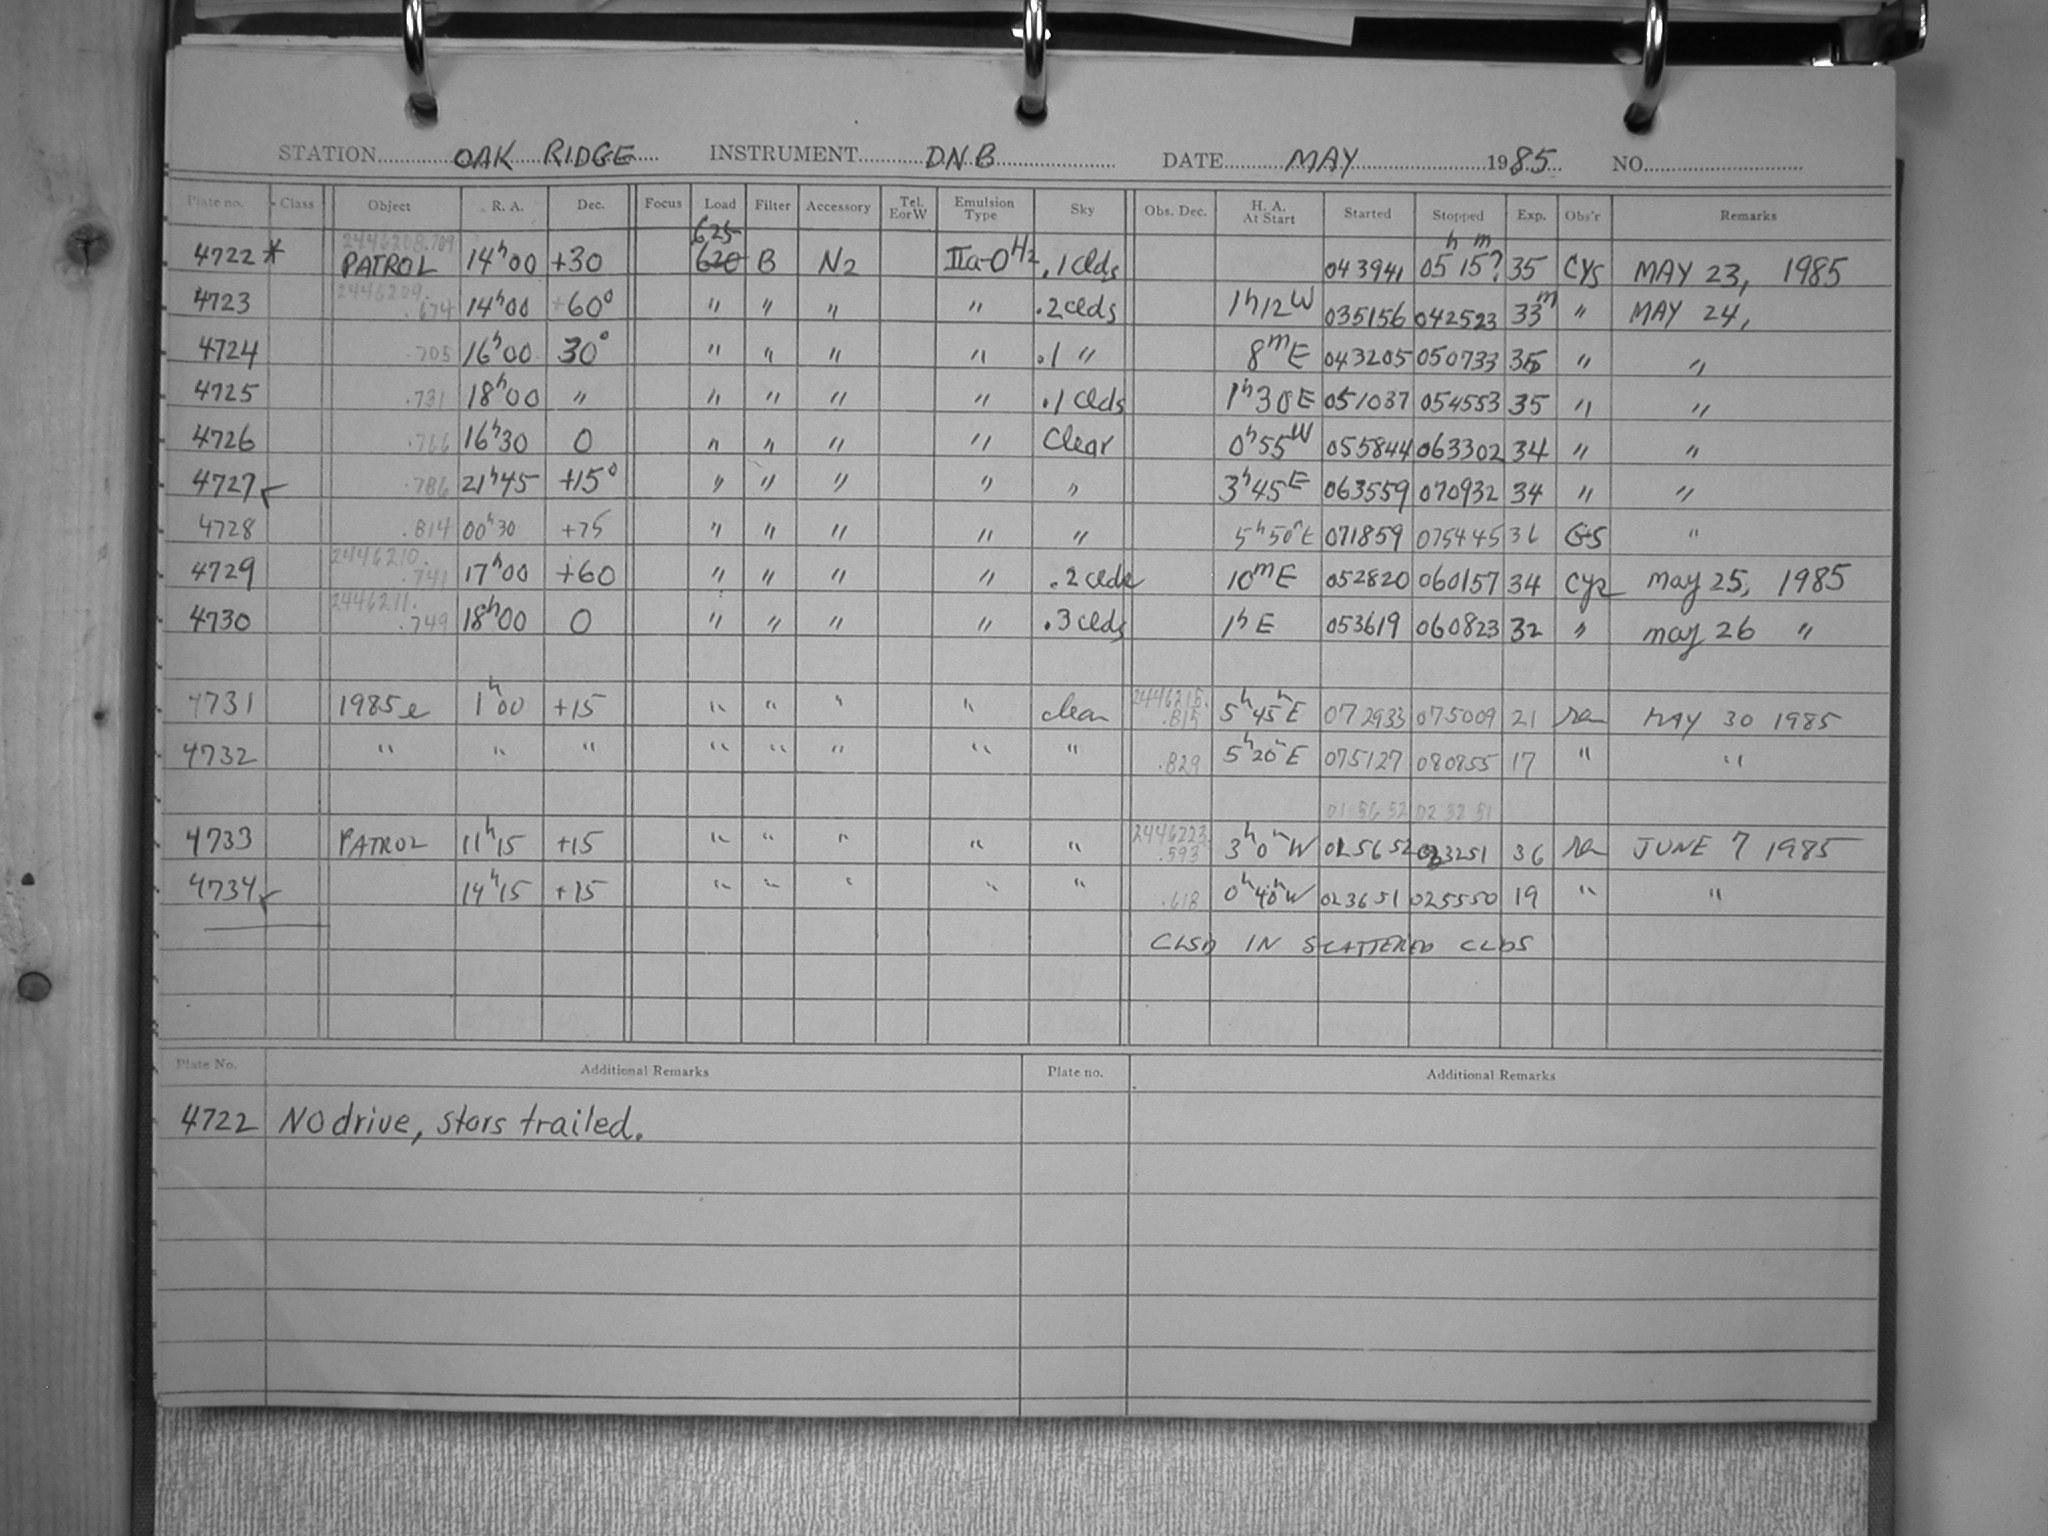 STATION OAK RIDGE INSTRUMENT DNB DATE MAY 1985 NO.
Plate no. Class Object R. A. Dec. Focus Load Filter Accessory Tel. E or W Emulsion Type Sky Obs. Dec. H. A. At Start Started Stopped Exp. Obs'r Remarks
2446208.709 625 h m
4722 * PATROL 14h00 +30 620 B N2 IIa-O H2 .1 clds 043941 05 15? 35 CYS MAY 23, 1985
2446209.
4723 .674 14h00 +60° " " " " .2 clds 1h12W 035156 042523 33m " MAY 24,
4724 .705 16h00 30° " " " " .1 " 8mE 043205 050733 35 " "
4725 .731 18h00 " " " " " .1 clds 1h30E 051037 054553 35 " "
4726 .766 16h30 0 " " " " Clear 0h55W 055844 063302 34 " "
4727 .786 21h45 +15° " " " " " 3h45E 063559 070932 34 " "
4728 .814 00h30 +75 " " " " " 5h50mE 071859 075445 36 GS "
2446210.
4729 .741 17h00 +60 " " " " .2 clds 10mE 052820 060157 34 May 25, 1985
2446211.
4730 .749 18h00 0 " " " " .3 clds 1hE 053619 060823 32 " May 26 "
4731 1985e 1h00 +15 " " " " clear 2446215. .815 5h45mE 072933 075009 21 MAY 30 1985
4732 " " " " " " " " .829 5h20mE 075127 080855 17 " "
01 56 52 02 32 51
4733 PATROL 11h15 +15 " " " " " 2446223. .593 3h0mW 015652 023251 36 JUNE 7 1985
4734 14h15 +15 " " " " " .618 0h40mW 023651 025550 19 " "
CLSD IN SCATTERED CLDS
Plate No. Additional Remarks Plate no. Additional Remarks
4722 No drive, stars trailed.